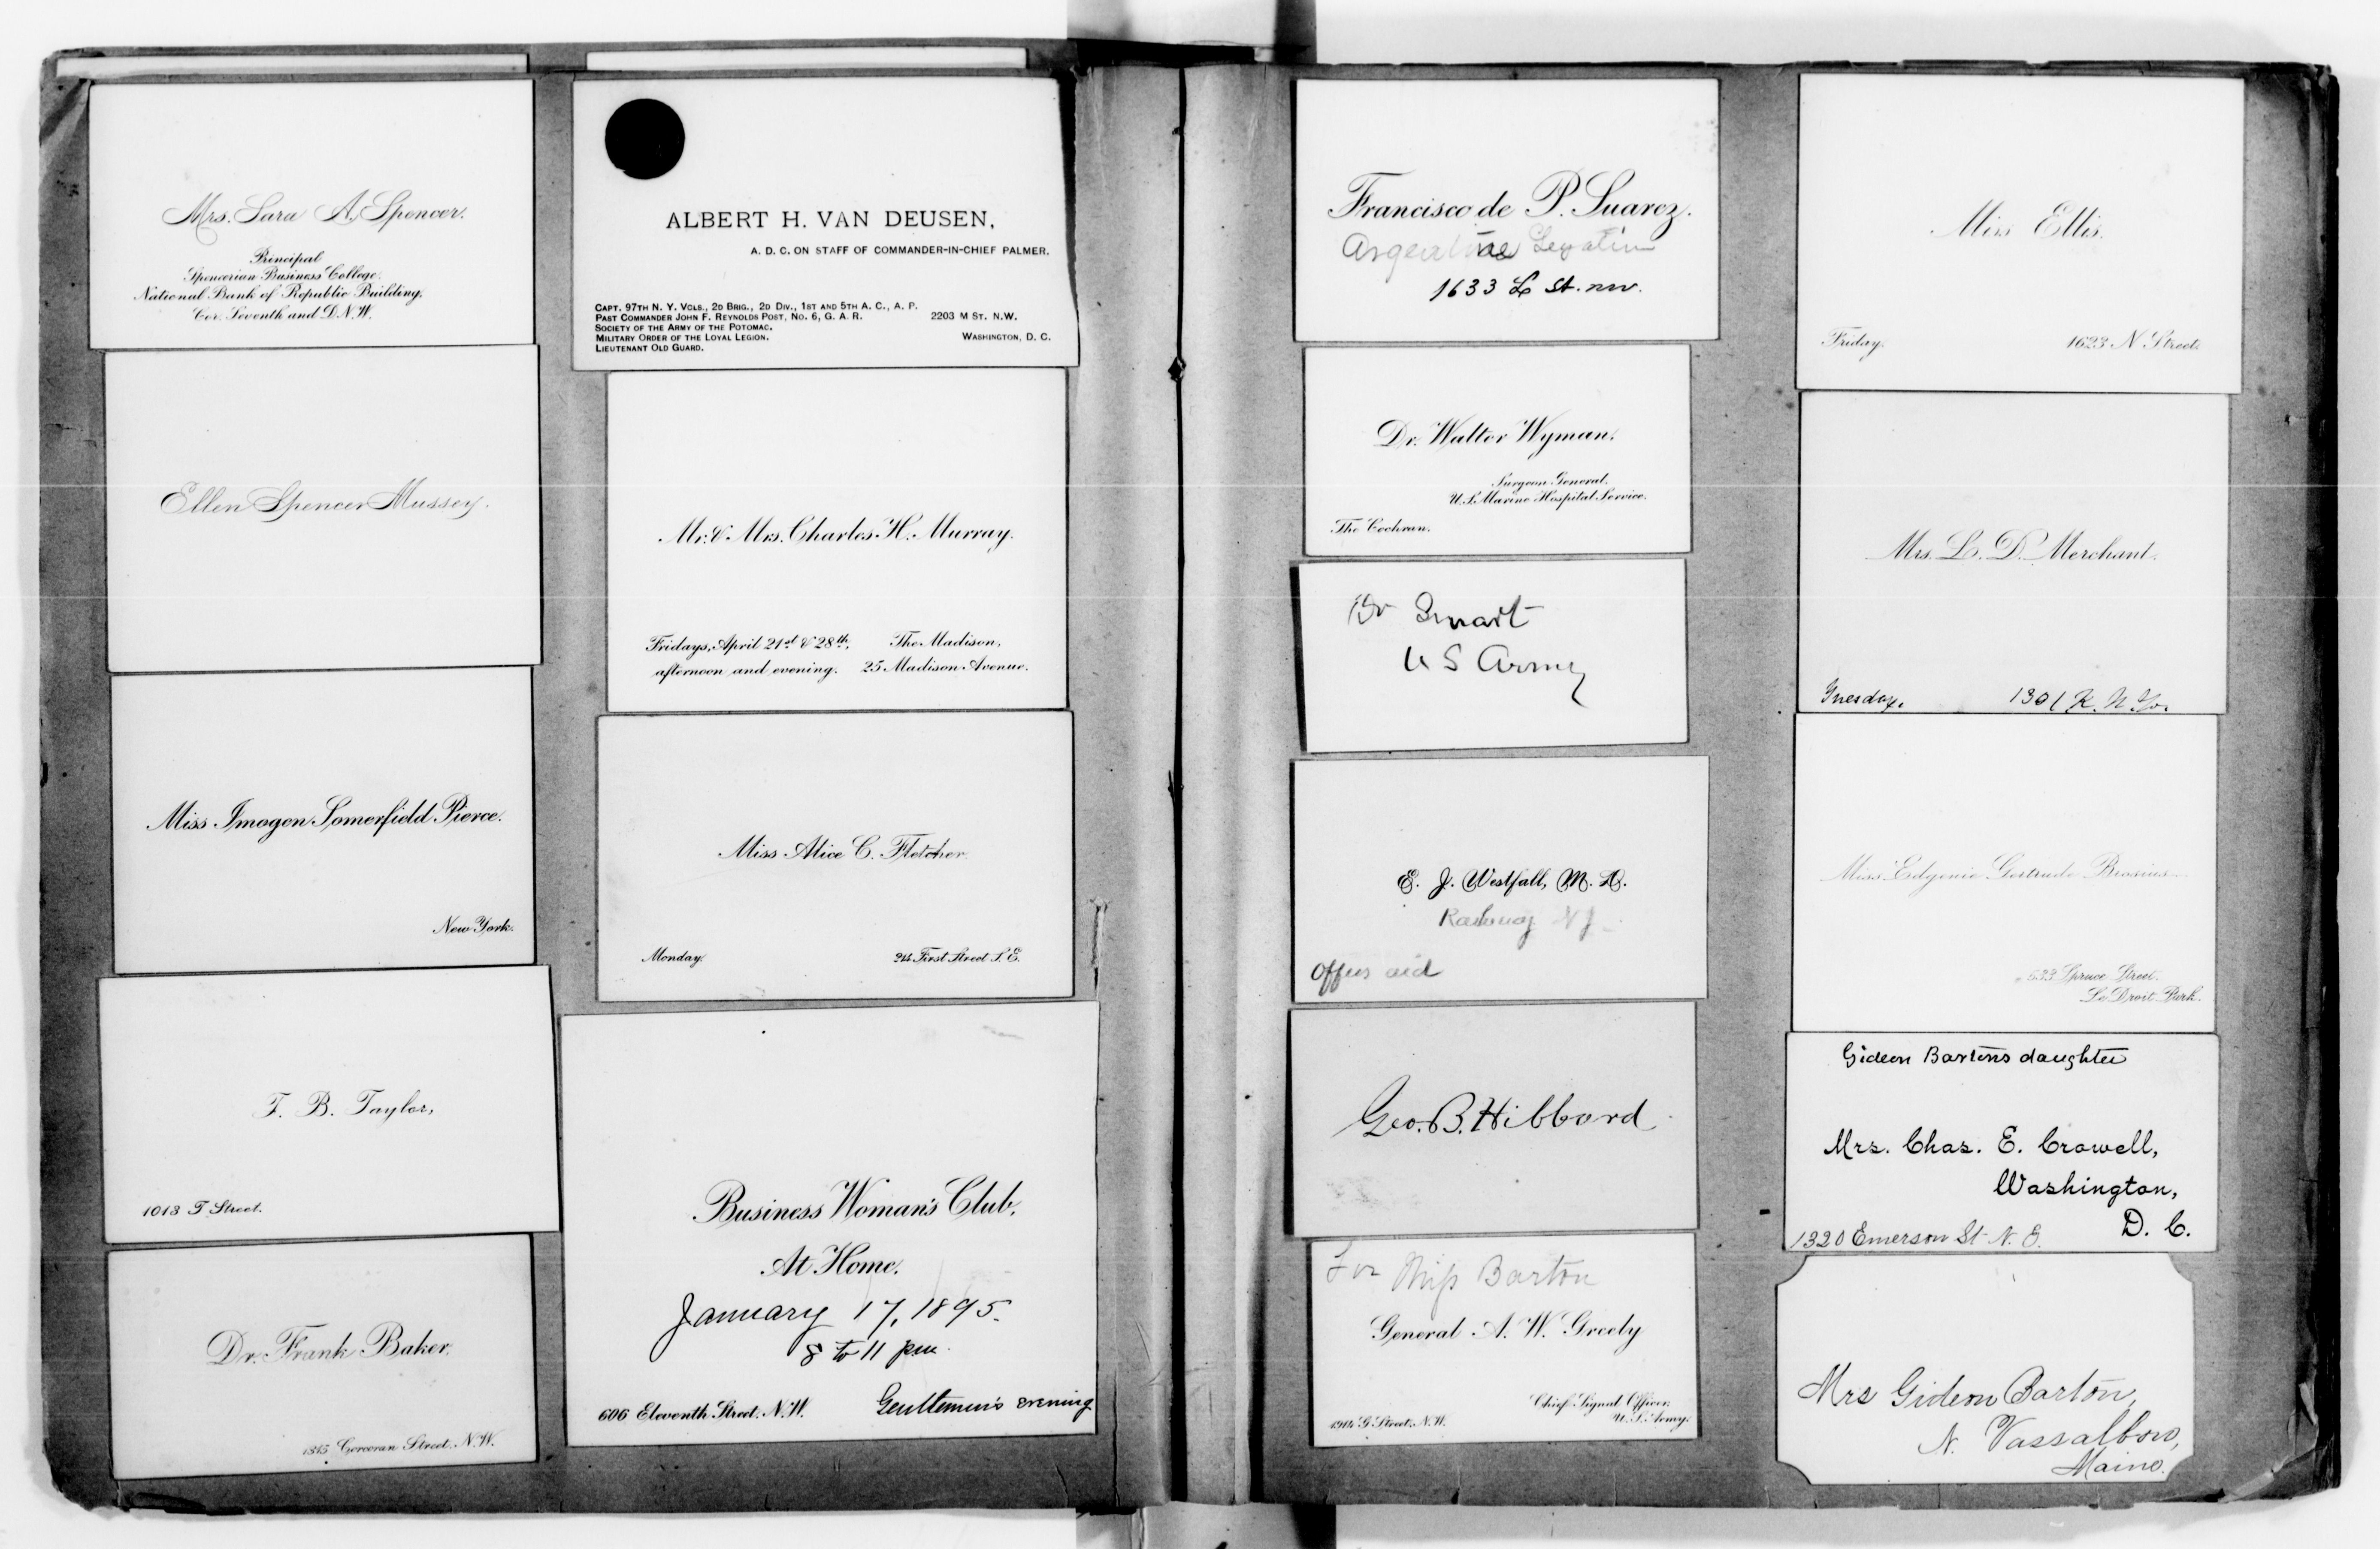 Mrs. Sara A. Spencer.
Principal
Spencerian Business College.
National Bank of Republic Building,
Cor. Seventh and D. N.W.
Ellen Spencer Mussey.
Miss Imogen Somerfield Pierce.
New York.
F. B. Taylor,
1013 T Street.
Dr. Frank Baker.
1315 Corcoran Street. N.W.
ALBERT H. VAN DEUSEN,
A. D. C. ON STAFF OF COMMANDER-IN-CHIEF PALMER.
CAPT. 97TH N. Y. VOLS., 2D BRIG., 2D DIV., 1ST AND 5TH A. C., A. P.
PAST COMMANDER JOHN F. REYNOLDS POST, NO. 6, G. A. R. 2203 M ST. N.W.
SOCIETY OF THE ARMY OF THE POTOMAC.
MILITARY ORDER OF THE LOYAL LEGION. WASHINGTON, D. C.
LIEUTENANT OLD GUARD.
Mr. & Mrs. Charles H. Murray.
Fridays, April 21st & 28th, The Madison,
afternoon and evening. 25 Madison Avenue.
Miss Alice C. Fletcher.
Monday. 214 First Street S.E.
Business Woman's Club.
At Home.
January 17, 1895.
8 to 11 pm.
606 Eleventh Street. N.W. Gentlemen's evening
Francisco de P. Suarez.
Argentine Legation
1633 L St. nw.
Dr. Walter Wyman,
Surgeon General,
U.S. Marine Hospital Service.
The Cochran.
Dr Smart
U S Army
E. J. Westfall, M. D.
Rahway N J
Offers aid
Geo. B. Hibbard
For Miss Barton
General A. W. Greely
Chief Signal Officer,
1914 G Street, N.W. U.S. Army.
Miss Ellis.
Friday. 1623 N Street.
Mrs. L. D. Merchant.
Tuesday. 1301 K. N.W.
Miss Edgenie Gertrude Brosius
533 Spruce Street,
Le Droit Park.
Gideon Bartons daughter
Mrs. Chas. E. Crowell,
Washington,
D. C.
1320 Emerson St N. E.
Mrs Gideon Barton,
N. Vassalboro,
Maine.